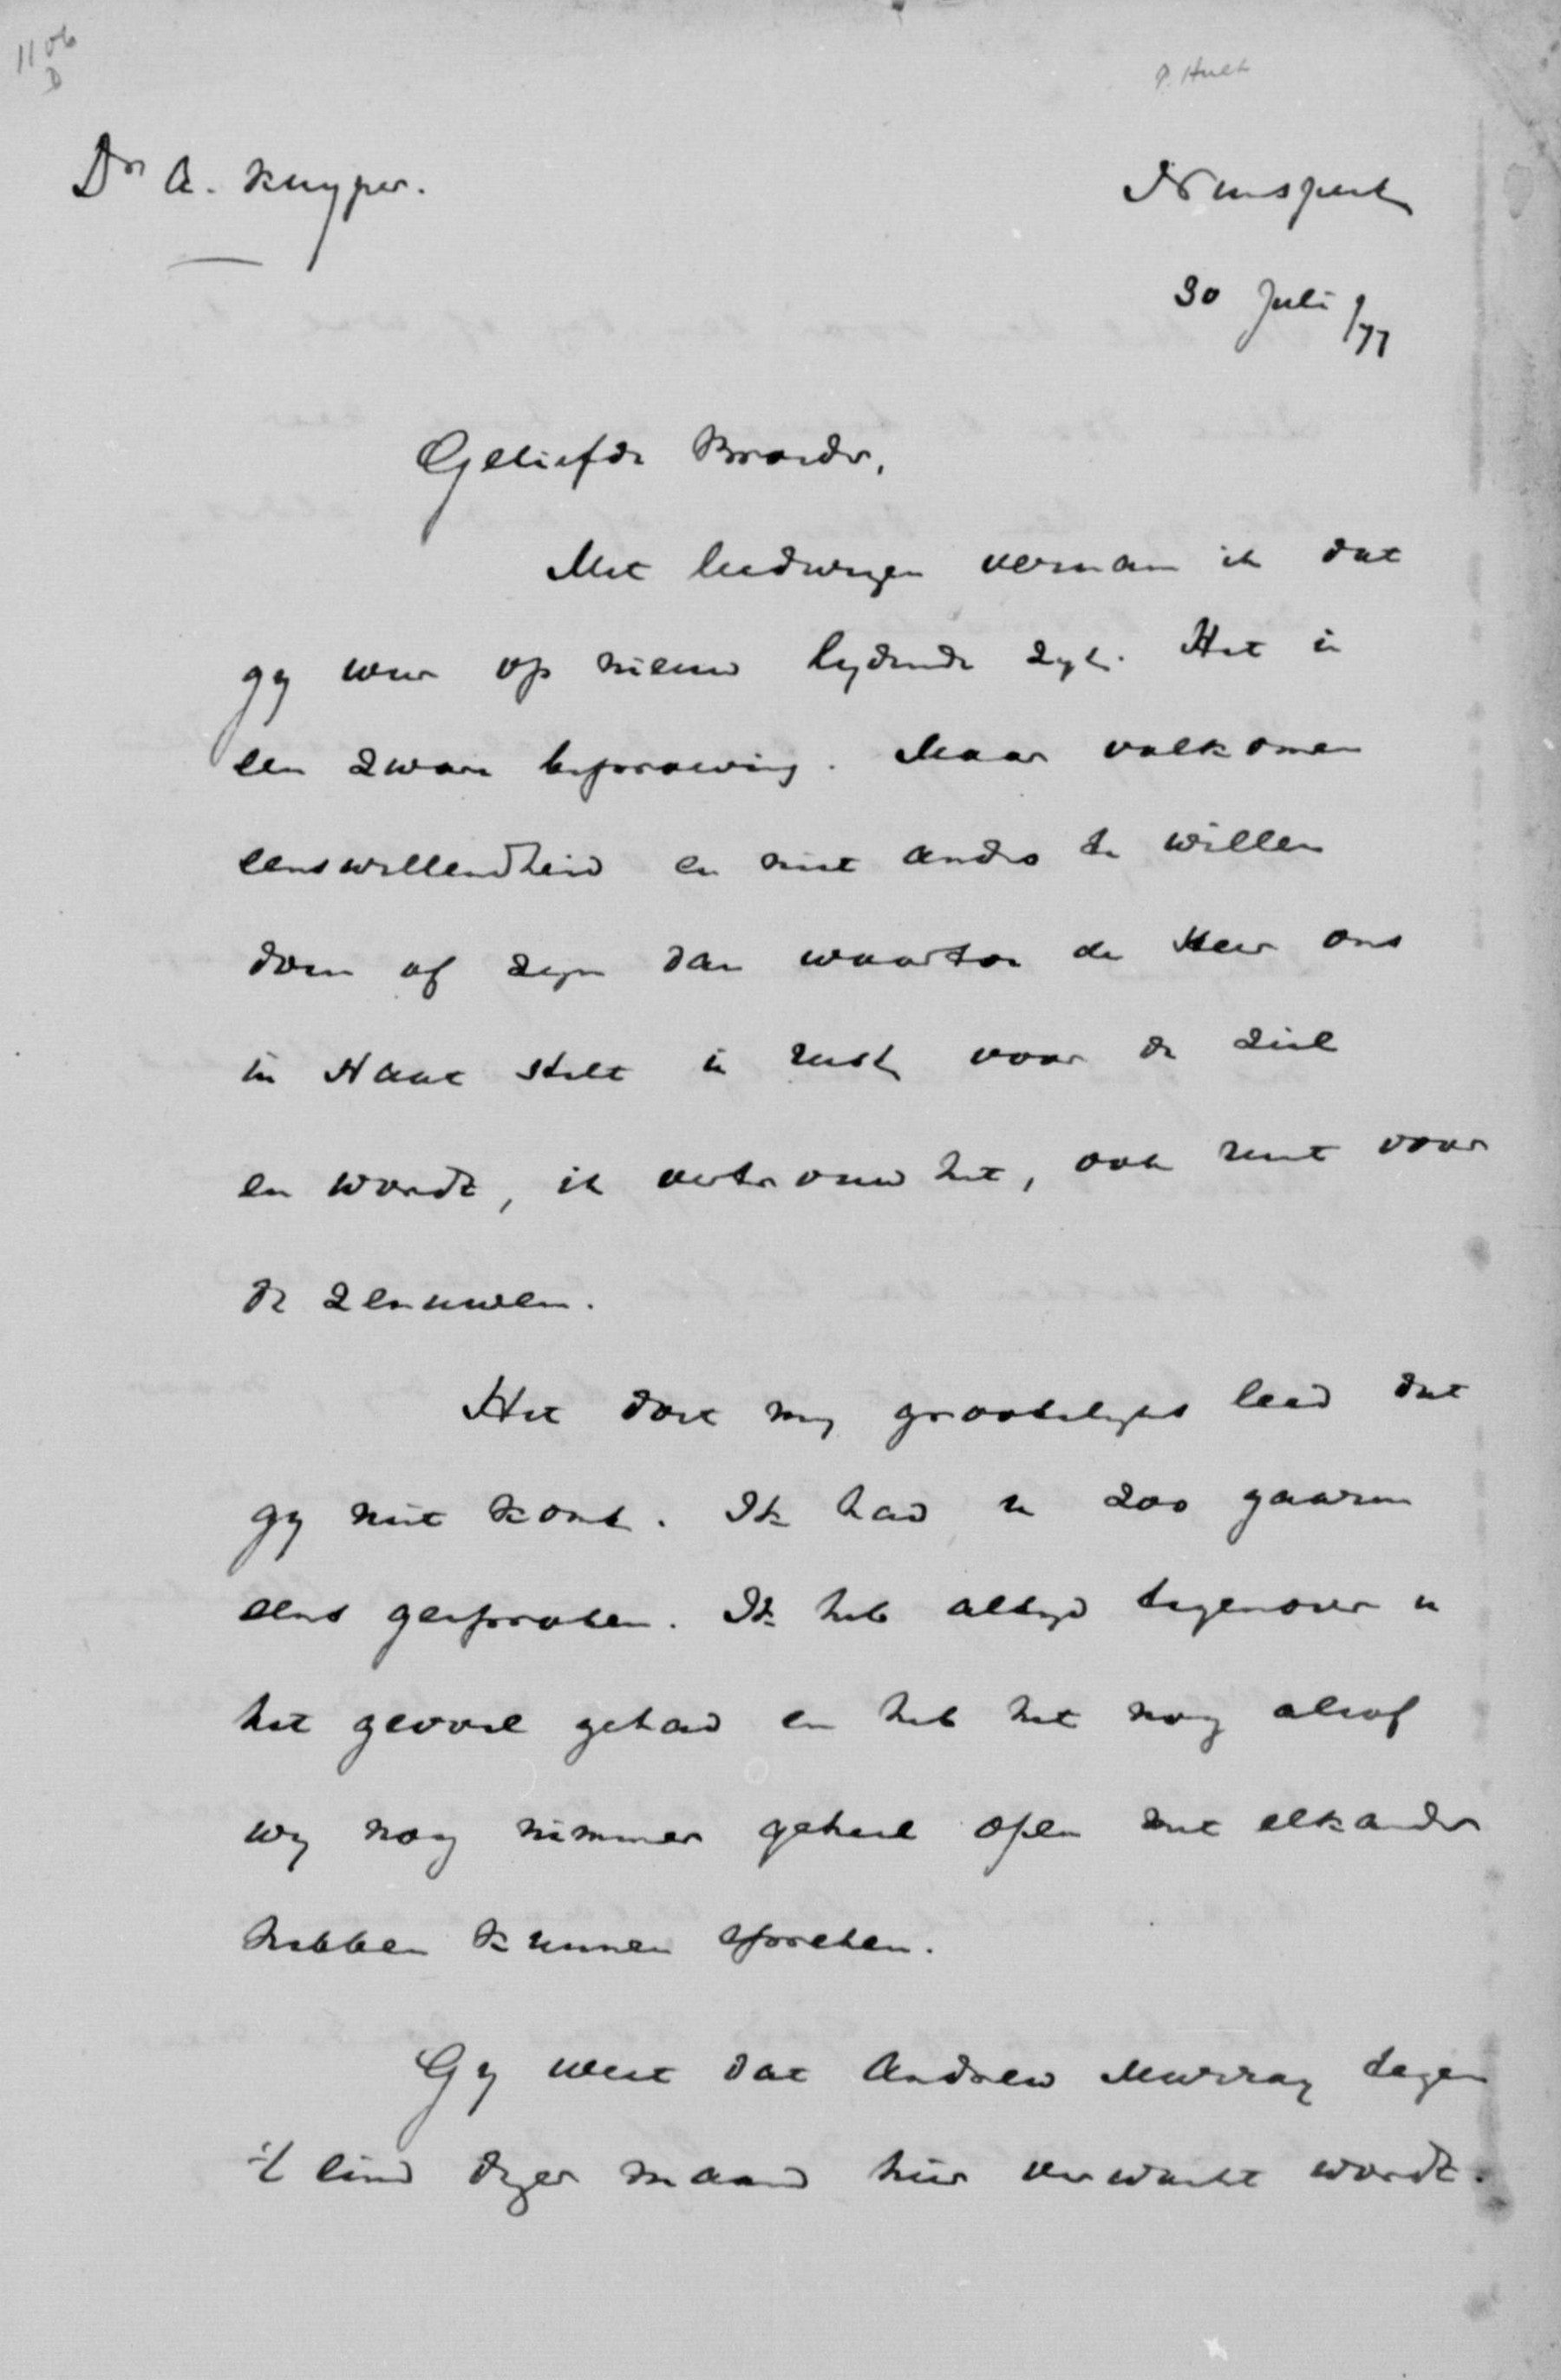 1106
D
P. Huet
Dr A. Kuyper.
Nunspeet
30 Juli /77
Geliefde Broeder,
Met leedwezen vernam ik dat
gy weer op nieuw lydende zyt. Het is
een zware beproeving. Maar volkomen
eenswillendheid en niet anders te willen
doen of zyn dan waartoe de Heer ons
in staat stelt is rust voor de ziel
en wordt, ik vertrouw het, ook rust voor
de zenuwen.
Het doet my grootelyks leed dat
gy niet komt. Ik had u zoo gaarne
eens gesproken. Ik heb altyd tegenover u
het gevoel gehad en heb het nog alsof
wy nog nimmer geheel open met elkander
hebben kunnen spreken.
Gy weet dat Andrew Murray tegen
't eind dezer maand hier verwacht wordt.